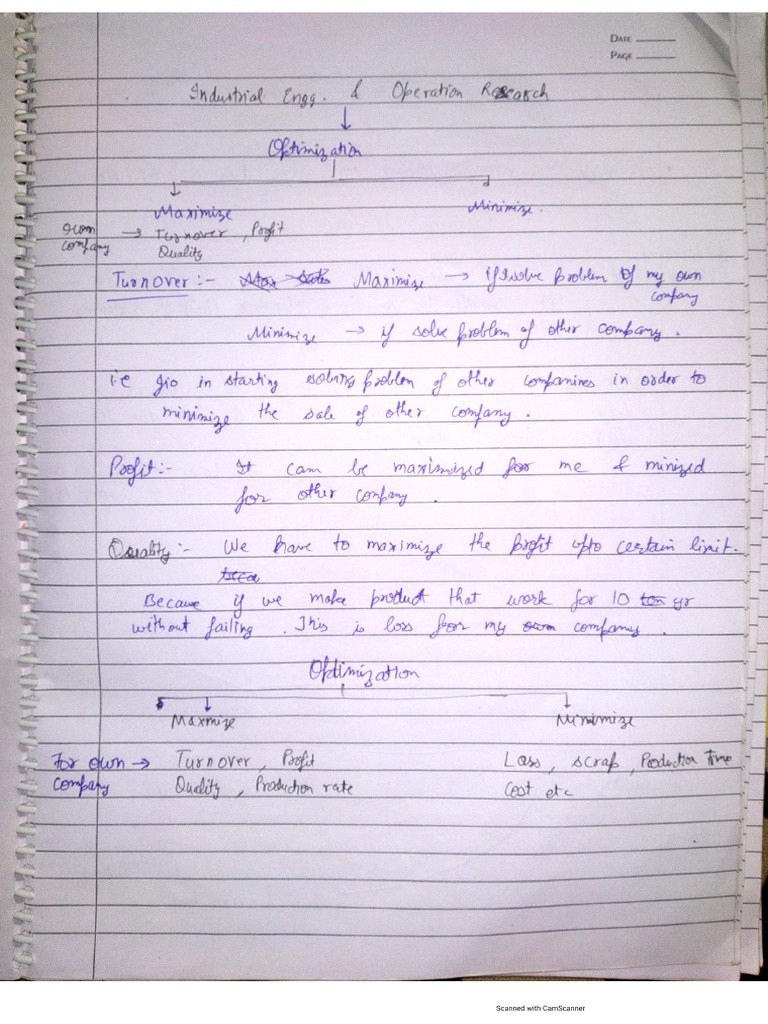 DATE
PAGE
Industrial Engg. & Operation Research
Optimization
Maximize Minimize.
company → Turnover, Profit
Quality
Turnover :- Maximize → if solve problem of my own
company
Minimize → if solve problem of other company.
i.e Jio in starting solving problem of other companines in order to
minimize the sale of other company.
Profit:- It can be maximized for me & minized
for other company.
Quality:- We have to maximize the profit upto certain limit.
Because if we make product that work for 10 yr
without failing. This is loss for my company.
Optimization
Maxmize Minimize
For own → Turnover, Profit Loss, scrap, Production Time
company Quality, Production rate Cost etc
Scanned with CamScanner